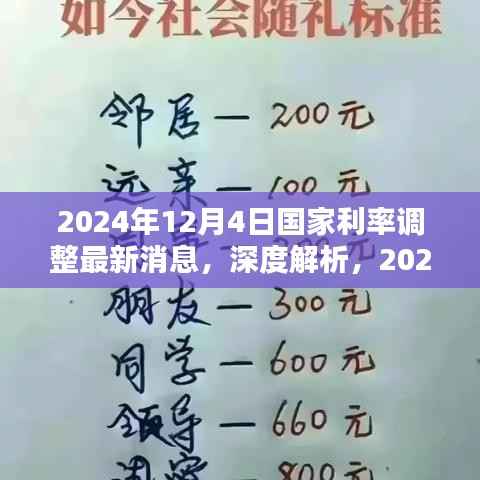 如今社会随礼标准
邻居—200元
远亲—100元
2024年12月4日国家利率调
整最新消息，深度解析，202
朋友—300元
同学—600元
领导—660元
—800元